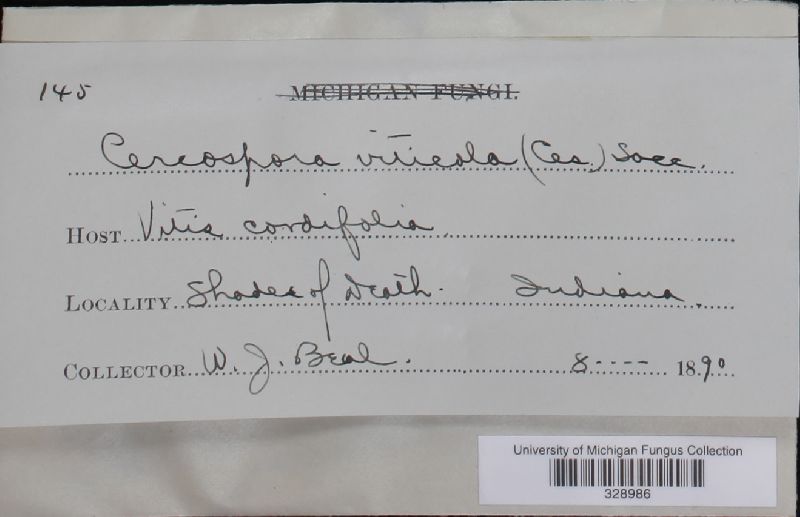 145 MICHIGAN FUNGI.
Cercospora viticola (Ces.) Sacc.
HOST Vitis cordifolia
LOCALITY Shades of Death. Indiana.
COLLECTOR W. J. Beal. 8---- 1890
University of Michigan Fungus Collection
328986